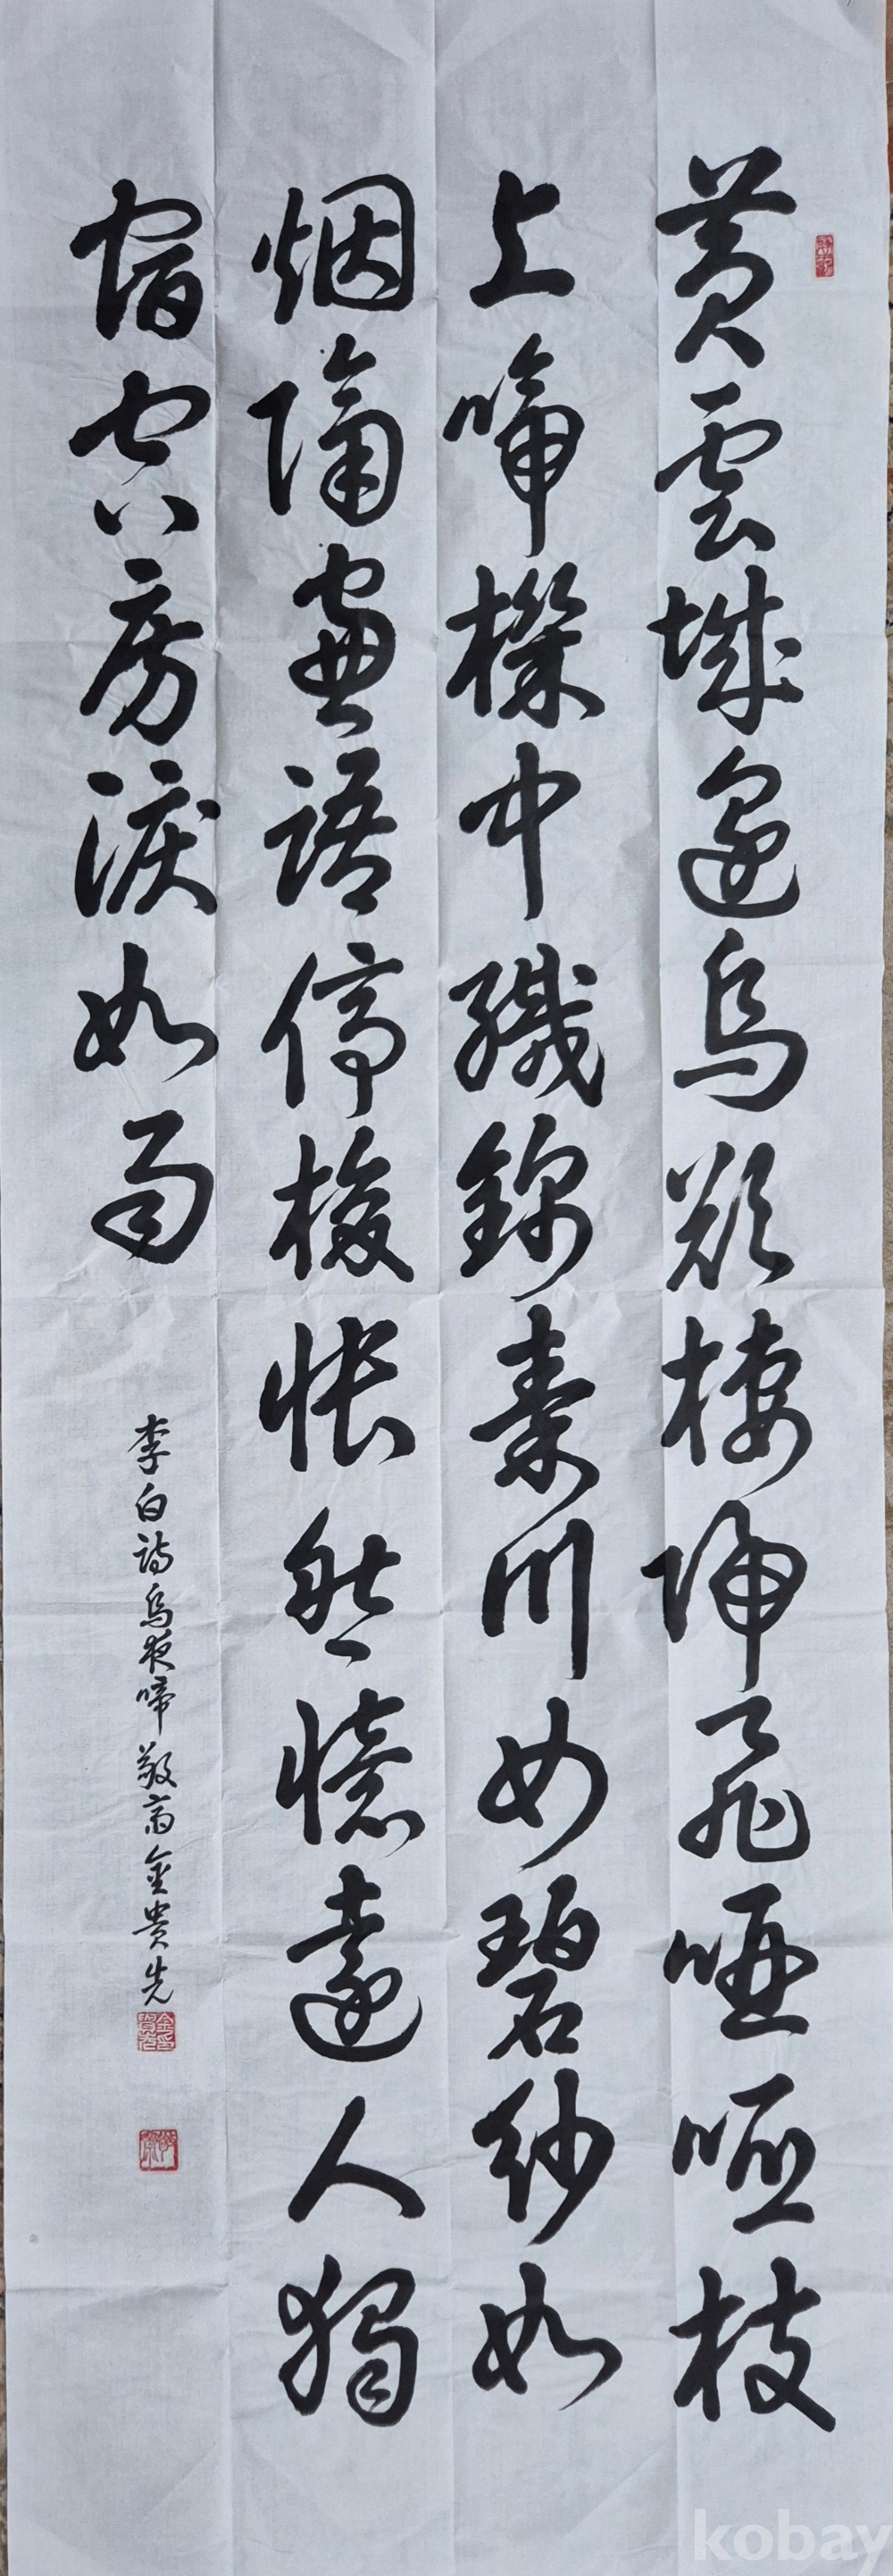 黃雲城邊烏欲棲歸飛啞啞枝
上啼機中織錦秦川女碧紗如
烟隔窗語停梭悵然憶遠人獨
宿空房淚如雨
李白詩烏夜啼 敬齋金貴先
kobay